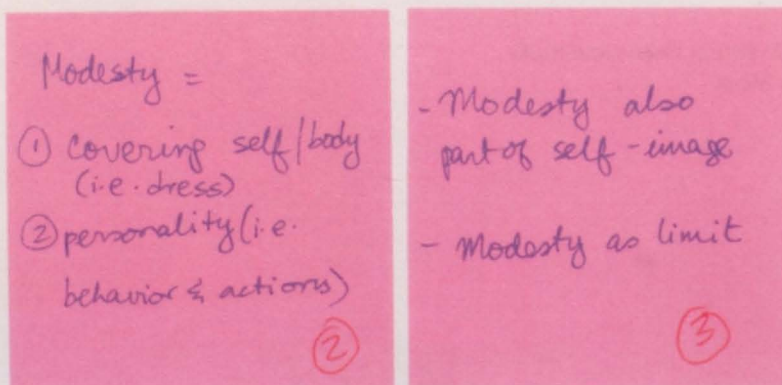 Modesty =
① covering self/body
(i.e. dress)
② personality (i.e.
behavior & actions)
②
- Modesty also
part of self-image
- Modesty as limit
③